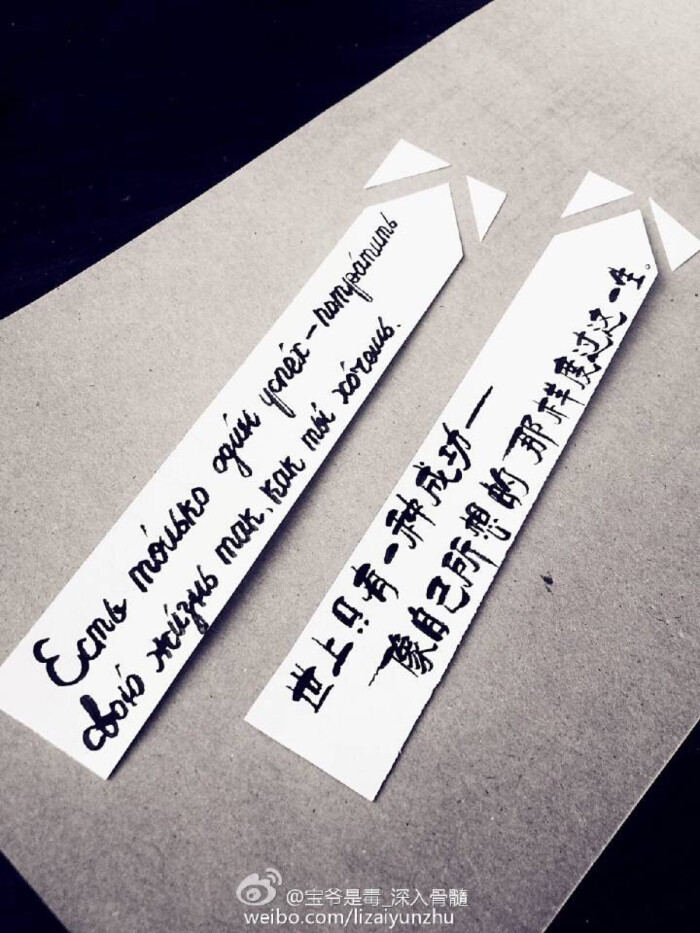 Есть то́лько оди́н успе́х – потра́тить
свою́ жи́знь так, как ты́ хо́чешь.
世上只有一种成功—
—像自己所想的那样度过这一生。
@宝爷是毒_深入骨髓
weibo.com/lizaiyunzhu